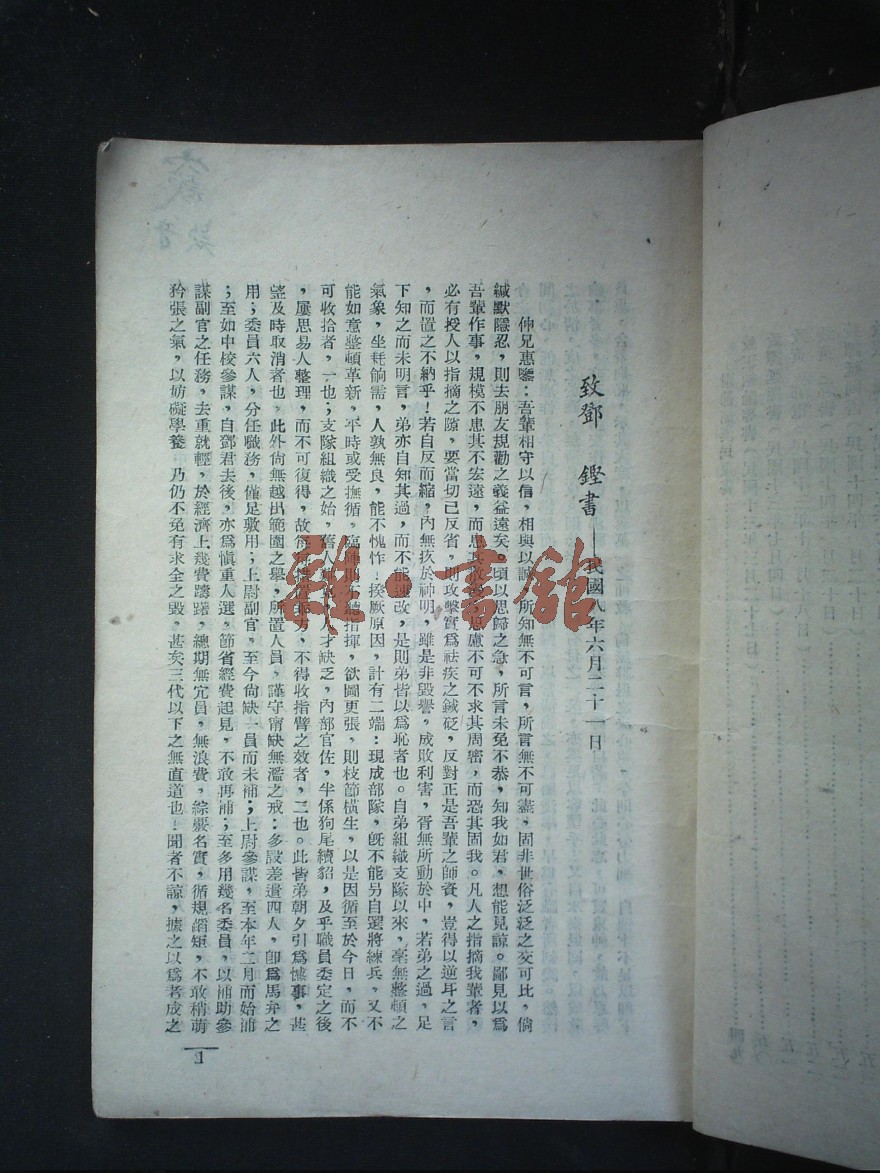 致鄧　鏗書——民國八年六月二十一日
仲兄惠鑒：吾輩相守以信，相與以誠，所知無不可言，所言無不可盡，固非世俗泛泛之交可比，倘
緘默隱忍，則去朋友規勸之義益遠矣。頃以思歸之急，所言未免不恭，知我如君，想能見諒。鄙見以為
吾輩作事，規模不患其不宏遠，而患其思慮不可不求其周密，而恐其固我。凡人之指摘我輩者，
必有授人以指摘之隙，要當切己反省，則攻擊實為祛疾之鍼砭，反對正是吾輩之師資，豈得以逆耳之言
，而置之不納乎！若自反而縮，內無疚於神明，雖是非毀譽，成敗利害，胥無所動於中，若弟之過，足
下知之而未明言，弟亦自知其過，而不能速改，是則弟皆以為恥者也。自弟組織支隊以來，毫無整頓之
氣象，坐耗餉需，人孰無良，能不愧怍！揆厥原因，計有二端：現成部隊，既不能另自選將練兵，又不
能如意整頓革新，平時或受撫循，臨陣則不聽指揮，欲圖更張，則枝節橫生，以是因循至於今日，而不
可收拾者，一也；支隊組織之始，舊人人才缺乏，內部官佐，半係狗尾續貂，及乎職員委定之後
，屢思易人整理，而不可復得，故每有措置乖方，不得收指臂之效者，二也。此皆弟朝夕引為憾事，甚
望及時取消者也，此外尚無越出範圍之舉，所置人員，謹守甯缺無濫之戒：多設差遣四人，卽為馬弁之
用；委員六人，分任職務，僅足敷用；上尉副官，至今尙缺一員而未補；上尉參謀，至本年二月而始補
；至如中校參謀，自鄧君去後，亦為愼重人選，節省經費起見，不敢再補；至多用幾名委員，以補助參
謀副官之任務，去重就輕，於經濟上幾費躊躇，總期無宂員，無浪費，綜覈名實，循規蹈矩，不敢稍萌
矜張之氣，以妨礙學養　乃仍不免有求全之毀，甚矣三代以下之無直道也！聞者不諒，據之以為若成之
1
雜·書館